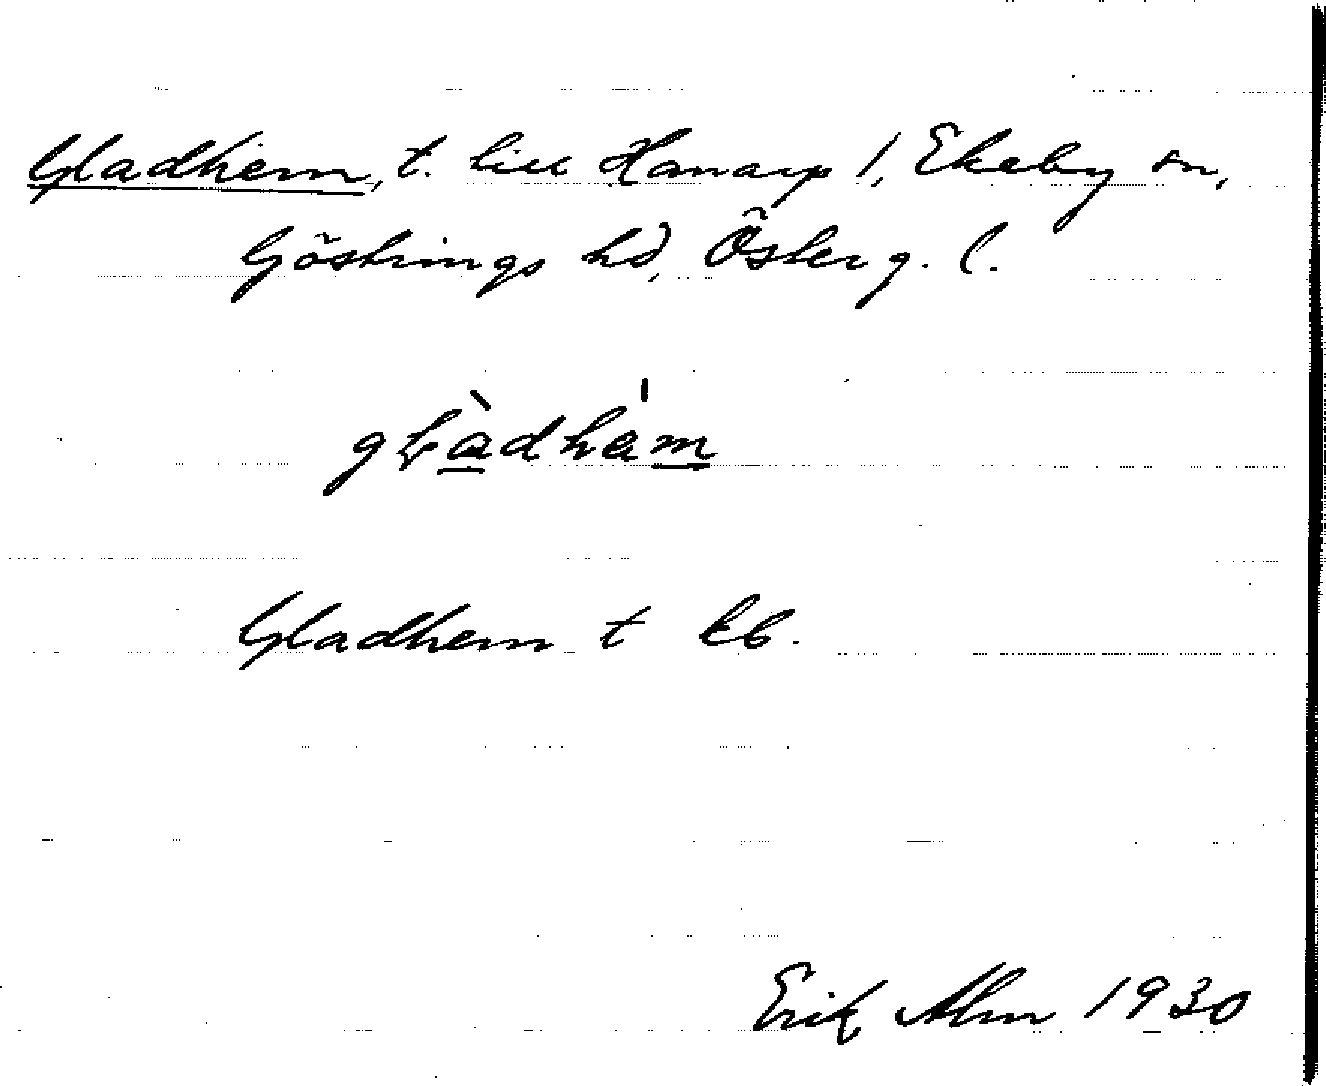 Gladhem, t. till Hanarp 1, Ekeby sn,
Göstrings hd, Österg. l.
glàdhèm
Gladhem t kb.
Erik Alm 1930